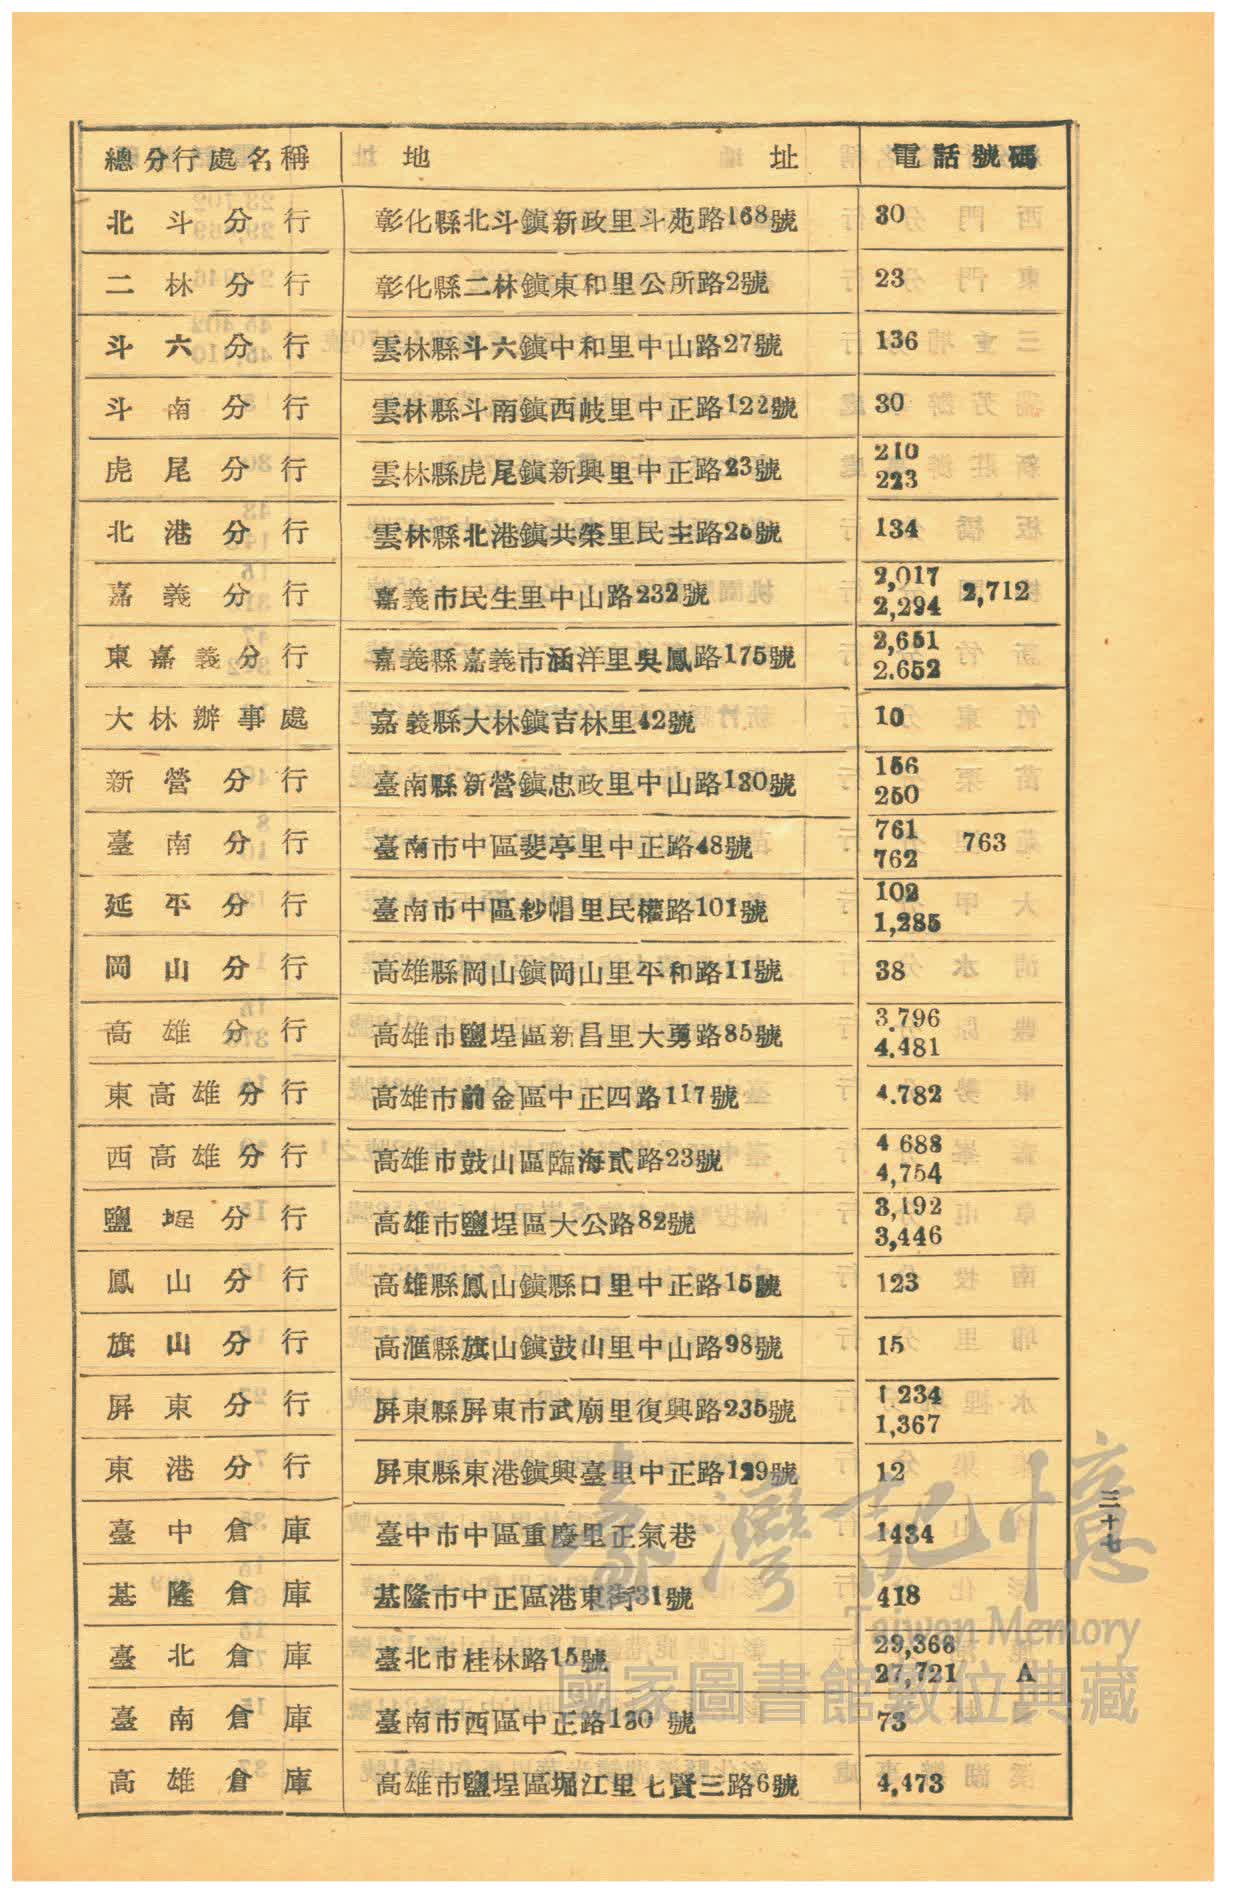 總分行處名稱 地址 電話號碼
北斗分行 彰化縣北斗鎮新政里斗苑路168號 30
二林分行 彰化縣二林鎮東和里公所路2號 23
斗六分行 雲林縣斗六鎮中和里中山路27號 136
斗南分行 雲林縣斗南鎮西岐里中正路122號 30
虎尾分行 雲林縣虎尾鎮新興里中正路23號 210
223
北港分行 雲林縣北港鎮共榮里民主路25號 134
嘉義分行 嘉義市民生里中山路232號 2,017 2,712
2,294
東嘉義分行 嘉義縣嘉義市涵洋里吳鳳路175號 2,651
2.652
大林辦事處 嘉義縣大林鎮吉林里42號 10
新營分行 臺南縣新營鎮忠政里中山路130號 156
250
臺南分行 臺南市中區斐亭里中正路48號 761 763
762
延平分行 臺南市中區紗帽里民權路101號 102
1,285
岡山分行 高雄縣岡山鎮岡山里平和路11號 38
高雄分行 高雄市鹽埕區新昌里大勇路85號 3.796
4.481
東高雄分行 高雄市前金區中正四路117號 4.782
西高雄分行 高雄市鼓山區臨海貳路23號 4 688
4,754
鹽埕分行 高雄市鹽埕區大公路82號 3,192
3,446
鳳山分行 高雄縣鳳山鎮縣口里中正路15號 123
旗山分行 高滙縣旗山鎮鼓山里中山路98號 15
屏東分行 屏東縣屏東市武廟里復興路235號 1 234
1,367
東港分行 屏東縣東港鎮興臺里中正路129號 12
臺中倉庫 臺中市中區重慶里正氣巷 1434
基隆倉庫 基隆市中正區港東街31號 418
臺北倉庫 臺北市桂林路15號 29,366
27,721 A
臺南倉庫 臺南市西區中正路130 號 73
高雄倉庫 高雄市鹽埕區堀江里七賢三路6號 4,473
三十七
臺灣記憶
Taiwan Memory
國家圖書館數位典藏